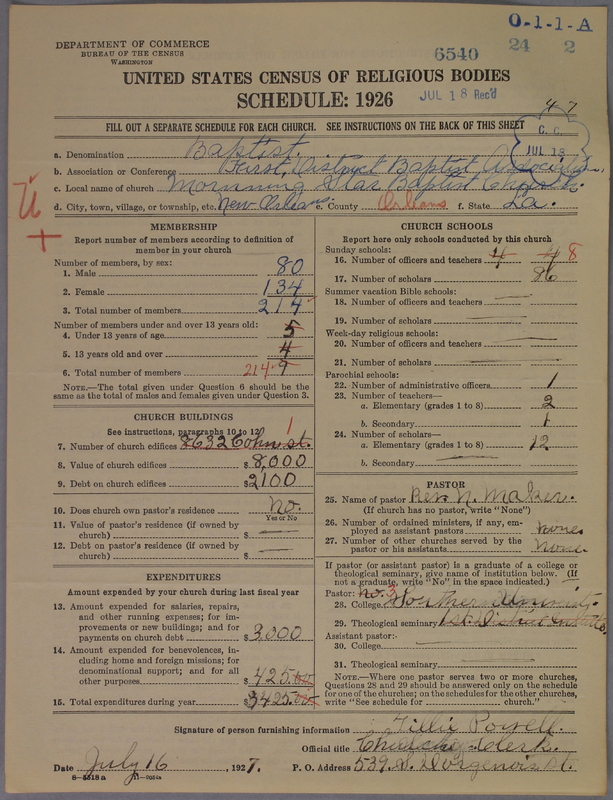 DEPARTMENT OF COMMERCE
BUREAU OF THE CENSUS
WASHINGTON
O-1-1-A
24 2
6540
UNITED STATES CENSUS OF RELIGIOUS BODIES
SCHEDULE: 1926
JUL 18 Rec'd
47
FILL OUT A SEPARATE SCHEDULE FOR EACH CHURCH. SEE INSTRUCTIONS ON THE BACK OF THIS SHEET
C. C.
JUL 18
a. Denomination Baptist.
b. Association or Conference First District Baptist Association,
c. Local name of church Morning Star Baptist Church.
d. City, town, village, or township, etc. New Orleans e. County Orleans f. State La.
MEMBERSHIP
Report number of members according to definition of
member in your church
Number of members, by sex:
1. Male 80
2. Female 134
3. Total number of members 214
Number of members under and over 13 years old:
4. Under 13 years of age 5
5. 13 years old and over 4
6. Total number of members 214 9
NOTE.—The total given under Question 6 should be the
same as the total of males and females given under Question 3.
CHURCH BUILDINGS
See instructions, paragraphs 10 to 12
1
7. Number of church edifices 8632 Cohn st.
8. Value of church edifices $8,000
9. Debt on church edifices $2100
10. Does church own pastor's residence? no.
Yes or No
11. Value of pastor's residence (if owned by
church) $
12. Debt on pastor's residence (if owned by
church) $
EXPENDITURES
Amount expended by your church during last fiscal year
13. Amount expended for salaries, repairs,
and other running expenses; for im-
provements or new buildings; and for
payments on church debt $3,000
14. Amount expended for benevolences, in-
cluding home and foreign missions; for
denominational support; and for all
other purposes $425.00
15. Total expenditures during year $3425.00
CHURCH SCHOOLS
Report here only schools conducted by this church
Sunday schools:
16. Number of officers and teachers 4 4 8
17. Number of scholars 86
Summer vacation Bible schools:
18. Number of officers and teachers
19. Number of scholars
Week-day religious schools:
20. Number of officers and teachers
21. Number of scholars
Parochial schools:
22. Number of administrative officers 1
23. Number of teachers—
a. Elementary (grades 1 to 8) 2
b. Secondary 1
24. Number of scholars—
a. Elementary (grades 1 to 8) 12
b. Secondary
PASTOR
25. Name of pastor Rev. N. Maker.
(If church has no pastor, write "None")
26. Number of ordained ministers, if any, em-
ployed as assistant pastors none.
27. Number of other churches served by the
pastor or his assistants None.
If pastor (or assistant pastor) is a graduate of a college or
theological seminary, give name of institution below. (If
not a graduate, write "No" in the space indicated.)
Pastor: no. 3
28. College
29. Theological seminary 1st. District
Assistant pastor:
30. College
31. Theological seminary
NOTE.—Where one pastor serves two or more churches,
Questions 28 and 29 should be answered only on the schedule
for one of the churches; on the schedules for the other churches,
write "See schedule for church."
Signature of person furnishing information Tillie Powell.
Official title Church Clerk.
Date July 16, 1927. P. O. Address 539. S. Dorgenois st.
8—5518 a